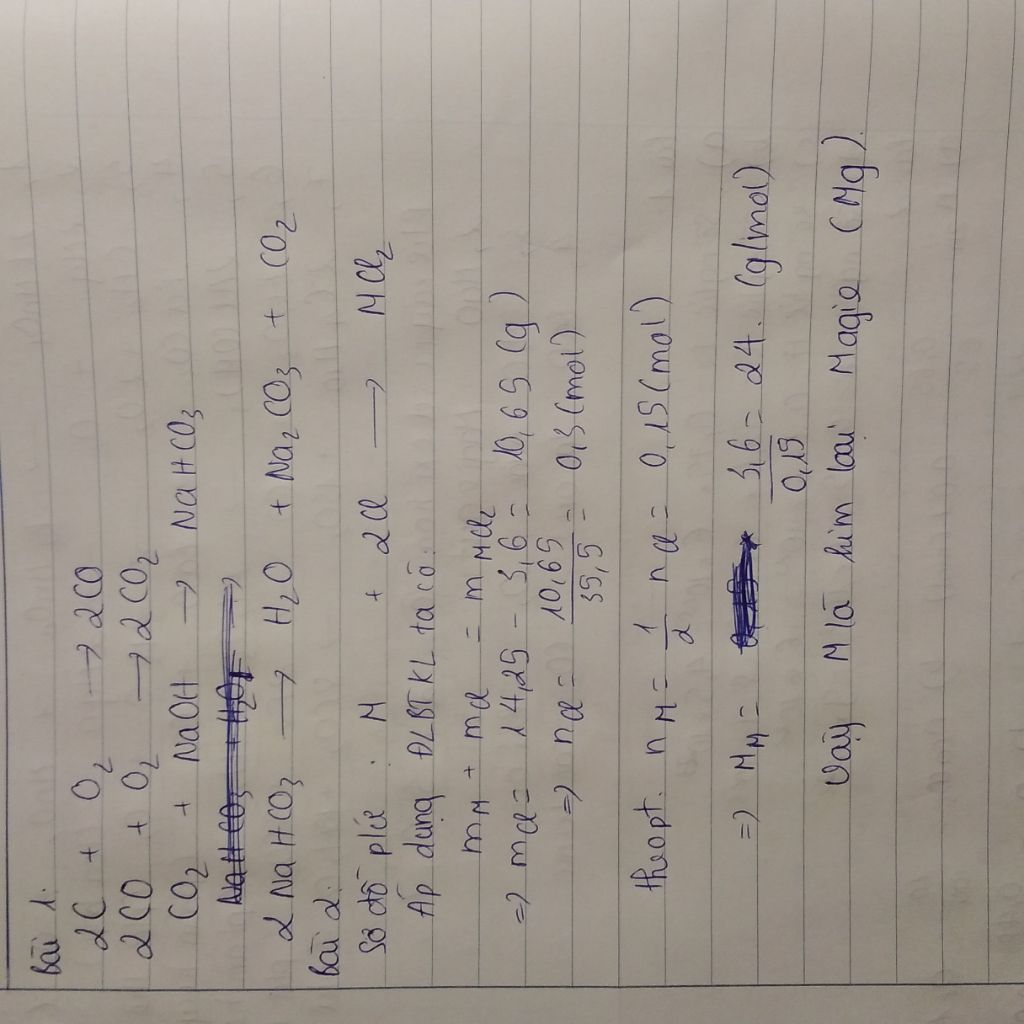 Bài 1.
2C + O₂ → 2CO
2CO + O₂ → 2CO₂
CO₂ + NaOH → NaHCO₃
2 NaHCO₃ → H₂O + Na₂CO₃ + CO₂
Bài 2.
Sơ đồ pứ : M + 2Cl → MCl₂
Áp dụng ĐLBTKL ta có:
m_M + m_Cl = m_MCl₂
=> m_Cl = 14,25 - 3,6 = 10,65 (g)
=> n_Cl = 10,65/35,5 = 0,3 (mol)
theo pt. n_M = 1/2 n_Cl = 0,15 (mol)
=> M_M = 3,6/0,15 = 24. (g/mol)
Vậy M là kim loại Magie (Mg).